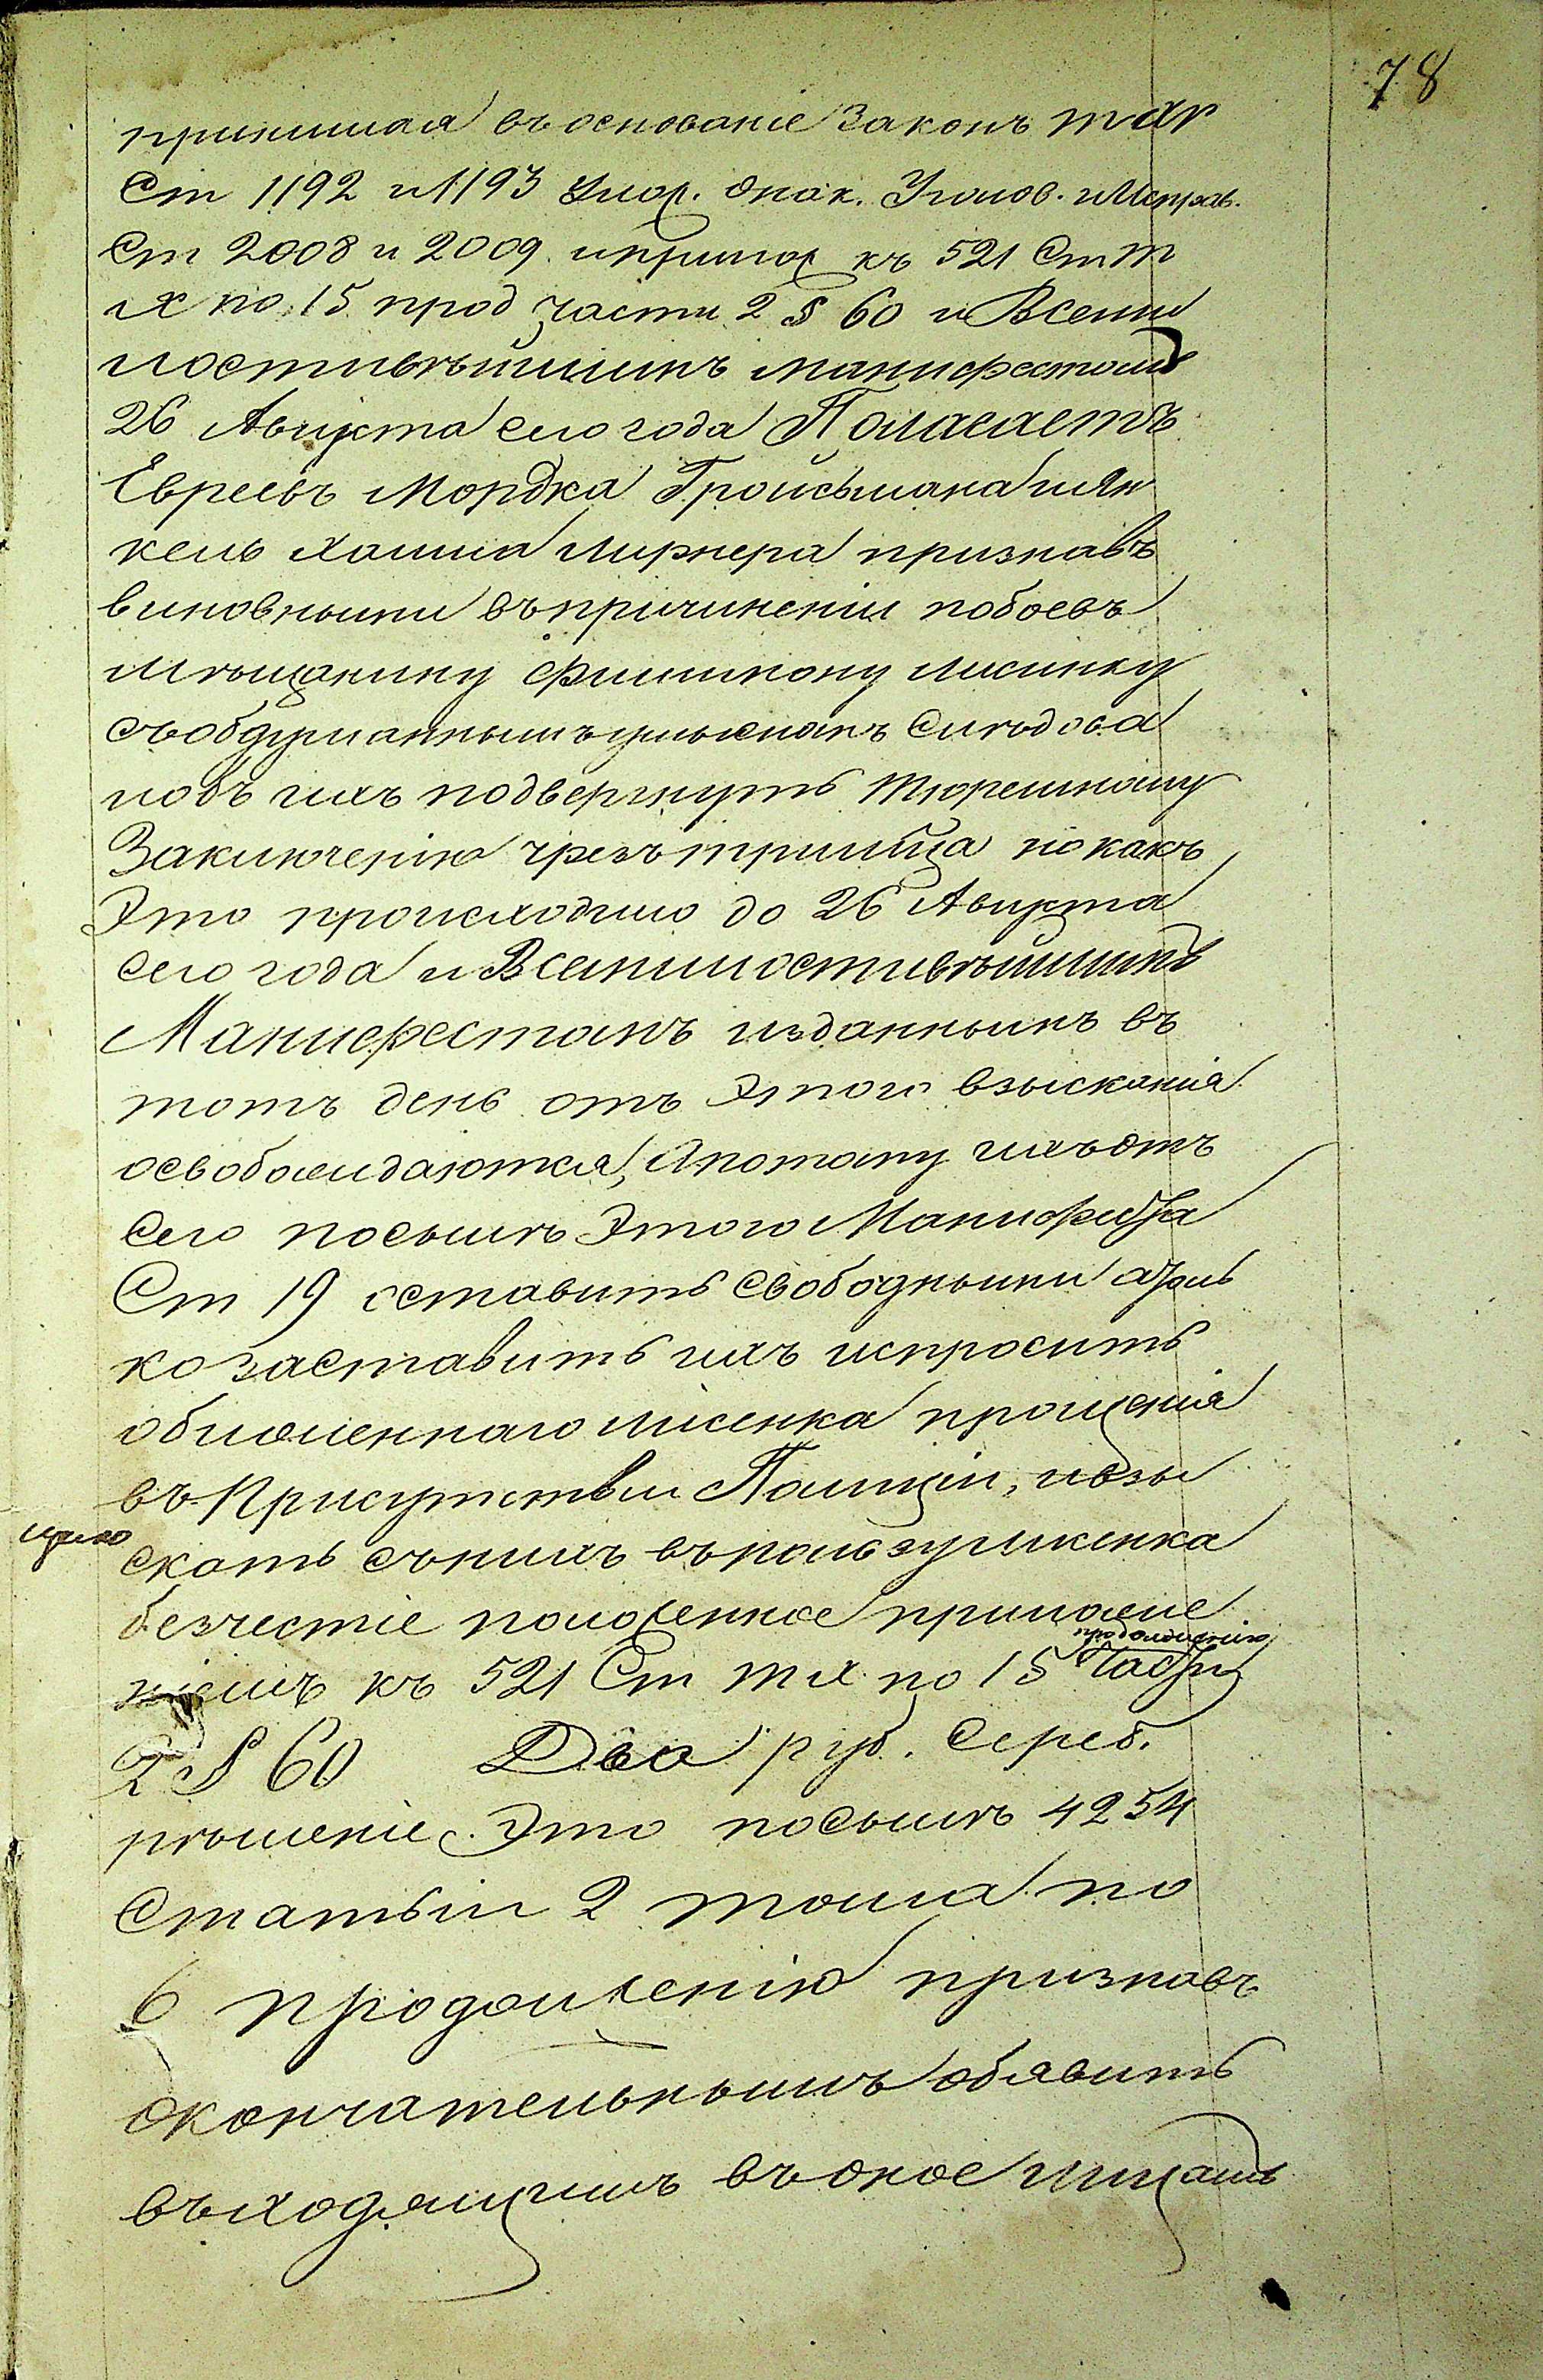 78
принимая въ основаніе законъ т XV
Ст 1192 и 1193 Улож. о нак. Уголов. и Исправ.
Ст 2008 и 2009 и прилож къ 521 Ст т
IX по 15 прод части 2 § 60 и Всеми
лостивѣйшимъ манифестомъ
26 Августа сего года Полагаетъ
Евреевъ Мордка Гройсьмана и Ян
кель Хаима Лирнера признавъ
виновными въ причиненіи побоевъ
Мѣщанину Филимону Лисинку
съ обдуманнымъ умысломъ Слѣдова
лобъ ихъ подвергнуть тюремному
Заключенію чрезъ три мѣсца но какъ
Это происходило до 26 Августа
сего года и Всемилостивѣйшимъ
Манифестомъ изданнымъ въ
тотъ день отъ Этого взысканія
освобождаются, А потому ихъ отъ
сего по смылѣ Этого Манифеста
Ст 19 оставить свободными а толь
ко заставить ихъ испросить
обиженнаго Лісенка прощенія
въ Присутствіи Полиціи, и взы
скать съ нихъ въ пользу Лисенка
безчестіе положенное приложе
ніемъ къ 521 Ст т IX по 15 продолженію Части
2 § 60 Два руб. Сереб.
рѣшеніе Это по смылѣ 4254
Статьіи 2 тома по
6 продолженію признавъ
окончательнымъ обявить
въходящимъ въ оное лицамъ